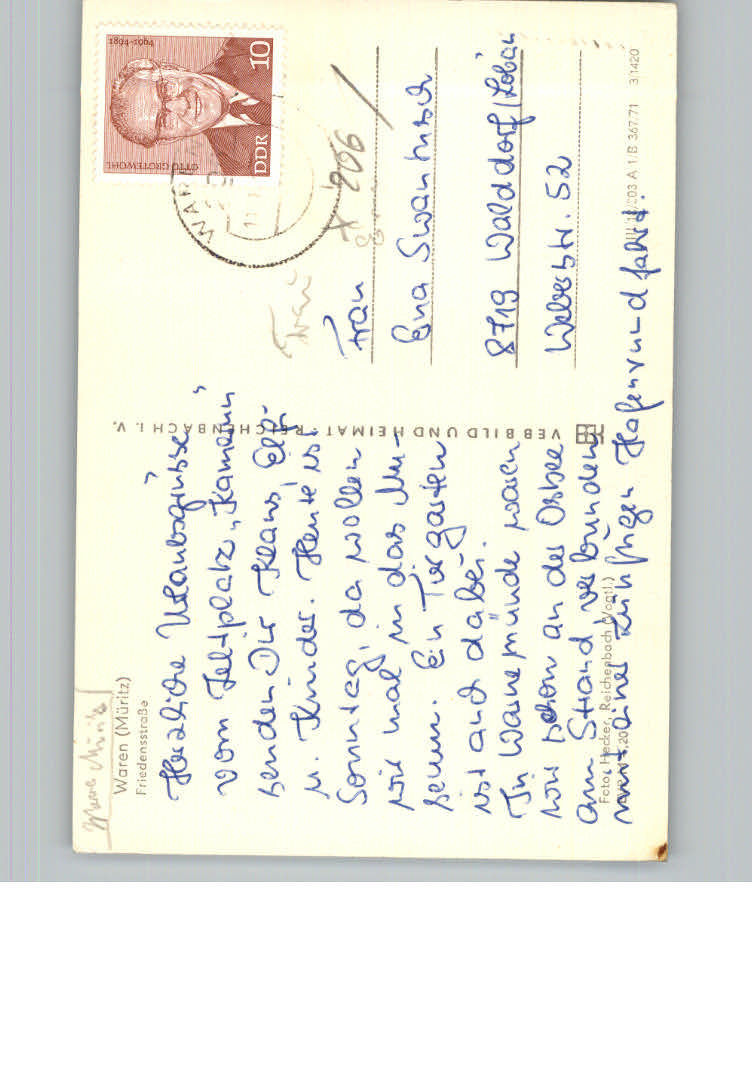 Waren (Müritz)
Friedensstraße
Herzliche Urlaubsgrüsse
vom Zeltplatz „Kamerun"
senden Dir Klaus,
u. Kinder. Heute ist
Sonntag, da wollen
wir mal in das Mu-
seum. Ein Tiergarten
ist auch dabei.
In Warnemünde waren
wir schon an der Ostsee
am Strand verbunden
mit einer Hafenrundfahrt.
Foto: Hecker, Reichenbach (Vogtl.)
VEB BILD UND HEIMAT REICHENBACH i. V.
1894-1964
OTTO GROTEWOHL
DDR
10
WAREN
X 206
Frau
Frau
Erna Swantusch
8719 Walddorf/Löbau
Weberstr. 52
A 1/B 367/71 3 1420